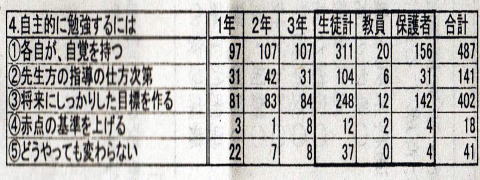 4.自主的に勉強するには 1年 2年 3年 生徒計 教員 保護者 合計
①各自が、自覚を持つ 97 107 107 311 20 156 487
②先生方の指導の仕方次第 31 42 31 104 6 31 141
③将来にしっかりした目標を作る 81 83 84 248 12 142 402
④赤点の基準を上げる 3 1 8 12 2 4 18
⑤どうやっても変わらない 22 7 8 37 0 4 41